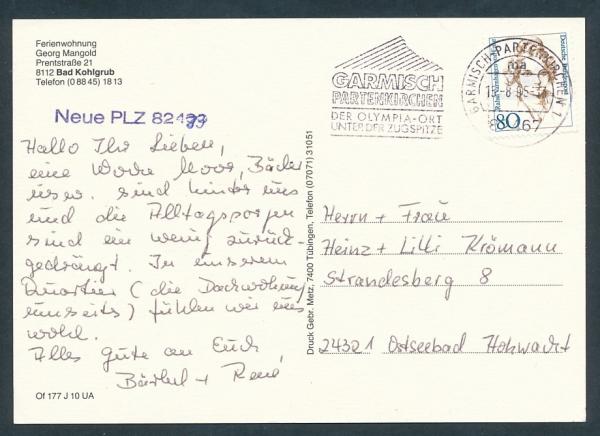 Ferienwohnung
Georg Mangold
Prentstraße 21
8112 Bad Kohlgrub
Telefon (0 88 45) 18 13
Neue PLZ 82433
Hallo Ihr Lieben,
eine Woche Moor, Bäder
usw. sind hinter uns
und die Alltagssorgen
sind ein wenig zurück-
gedrängt. In unserem
Quartier (die Dachwohnung
umseits) fühlen wir uns
wohl.
Alles gute an Euch,
Bärbel + René
Of 177 J 10 UA
Druck Gebr. Metz, 7400 Tübingen, Telefon (07071) 31051
GARMISCH
PARTENKIRCHEN
DER OLYMPIA-ORT
UNTER DER ZUGSPITZE
GARMISCH-PARTENKIRCHEN 1
ma
-8.95
467
Deutsche Bundespost
80
Herrn + Frau
Heinz + Lilli Krömann
Strandesberg 8
24321 Ostseebad Hohwacht